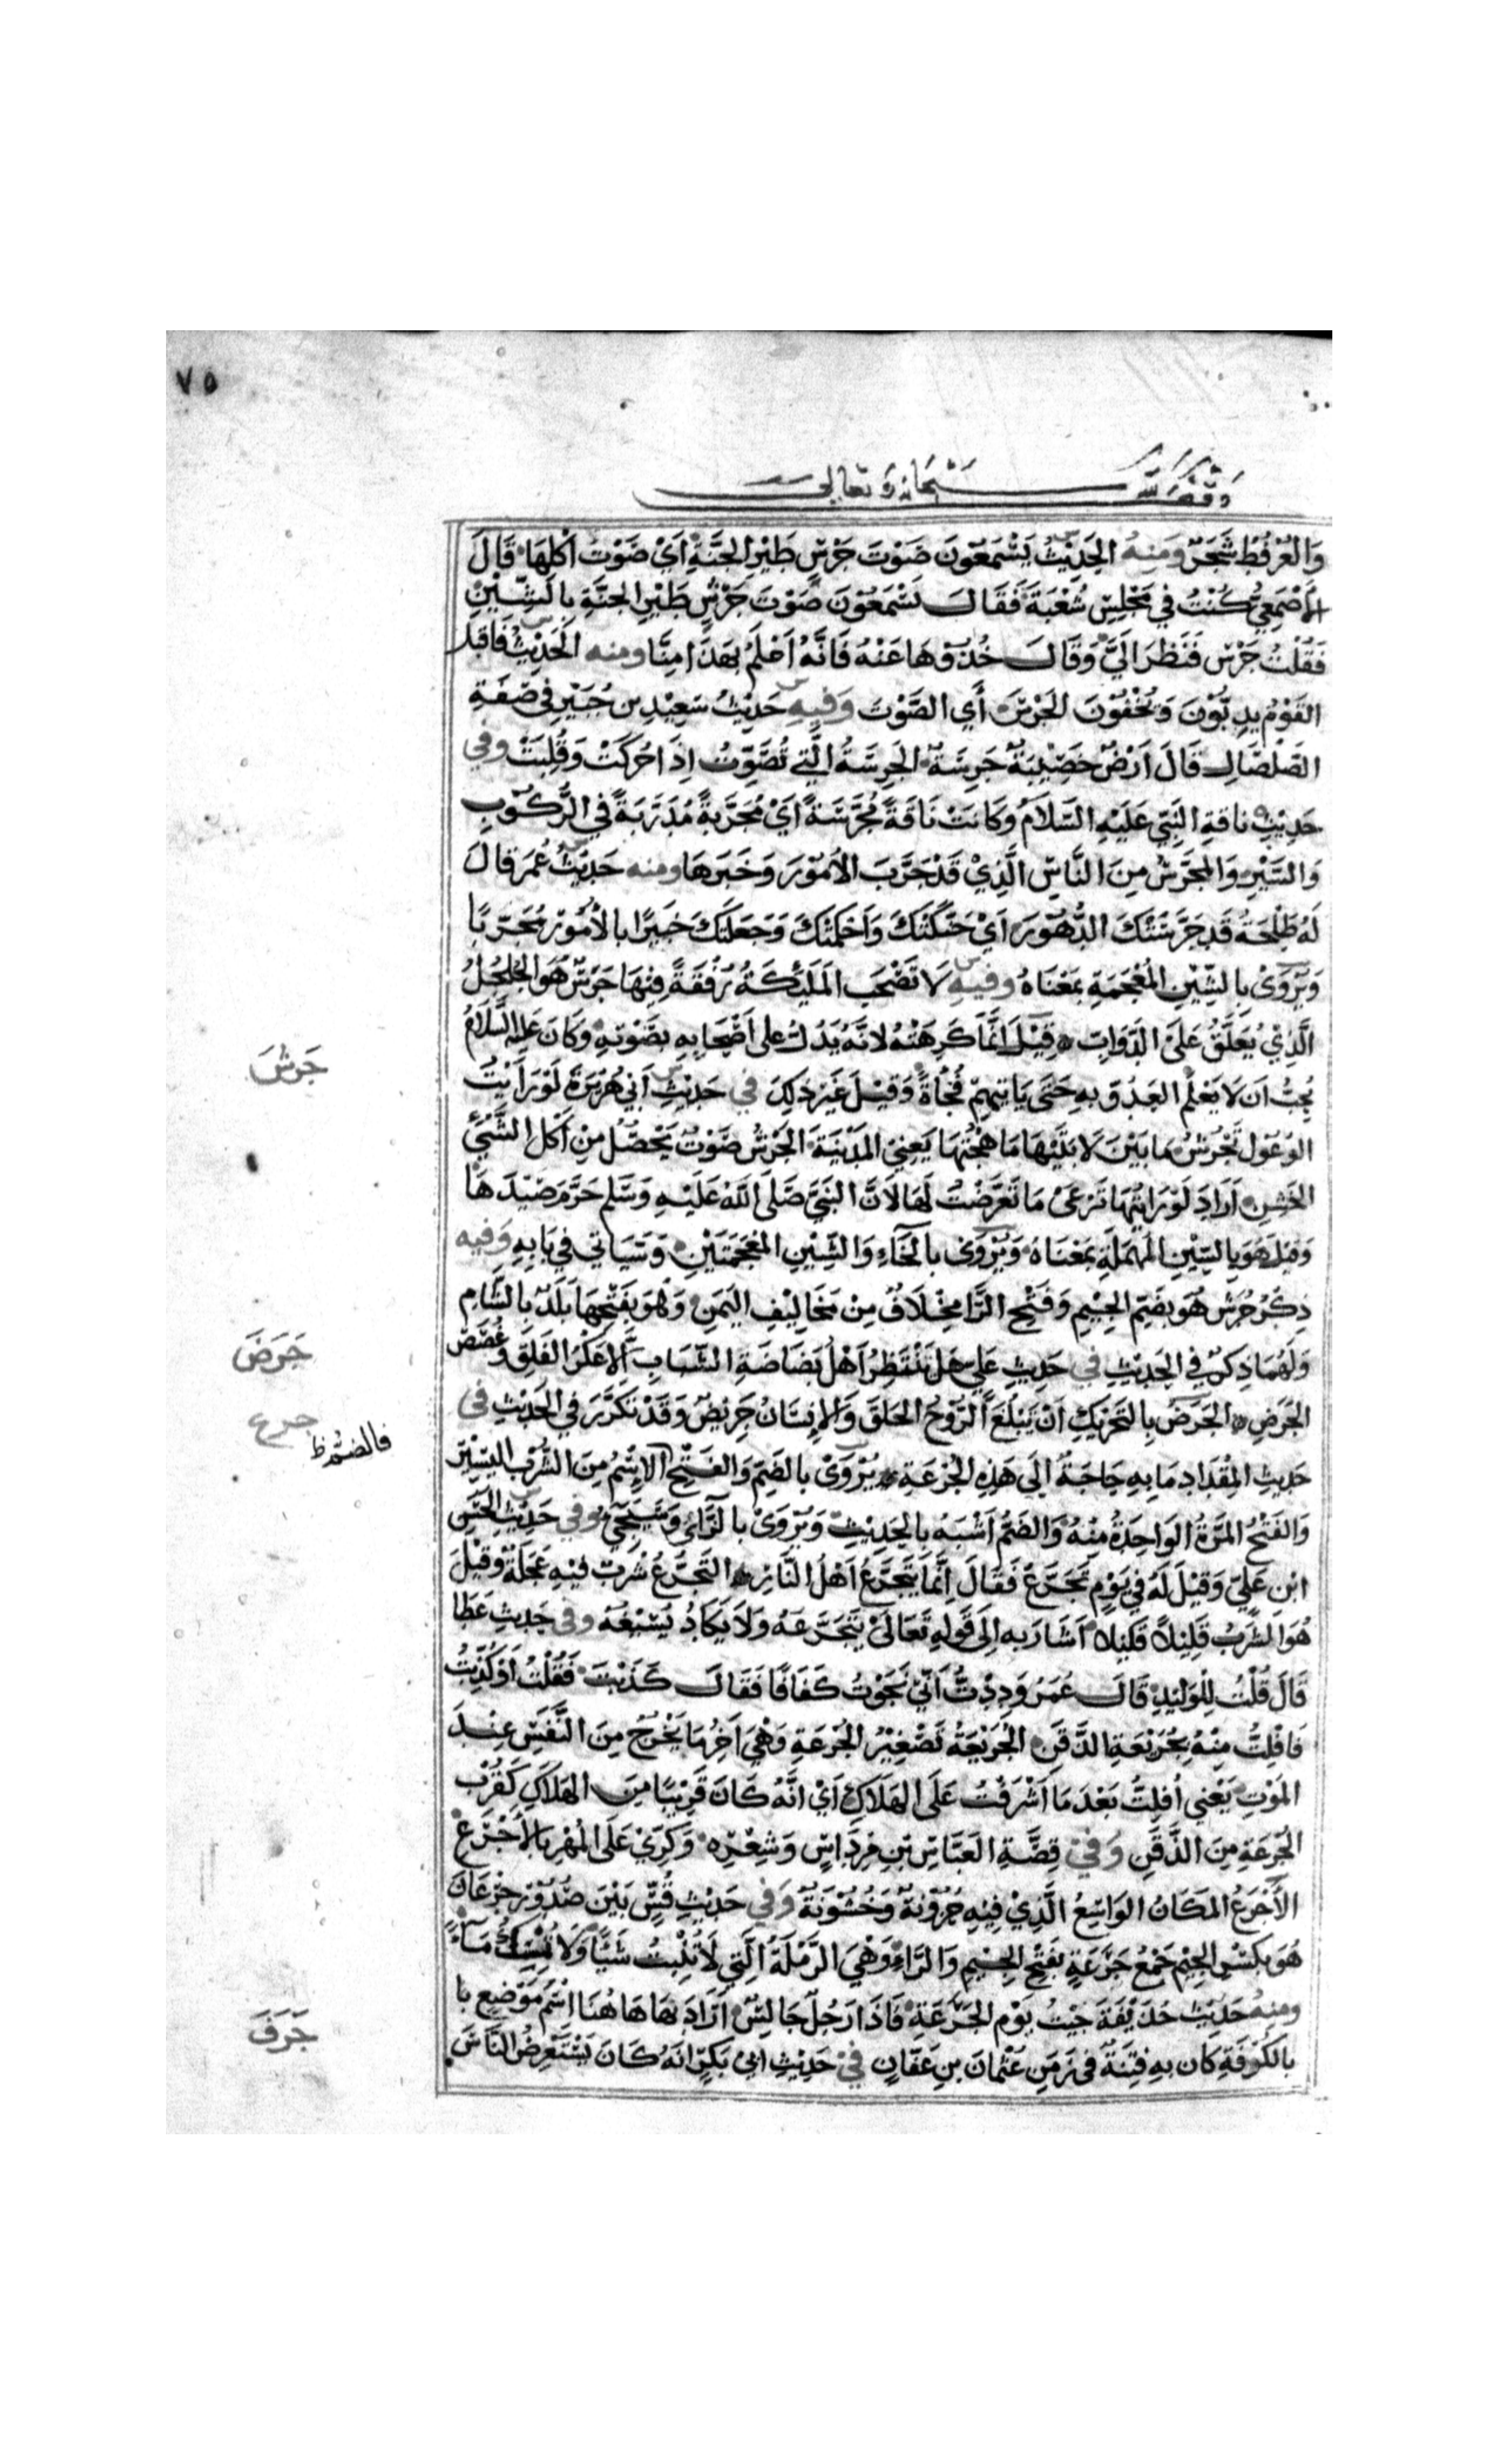 ٧٥
وقف لله سبحانه وتعالى
وَالعُرفُط شَجَرٌ ومنهُ الحَدِيْثُ يَسْمَعُونَ صَوْتَ جَرْسِ طَيْرِ الجَنَّةِ اَىْ صَوْتَ اَكْلِهَا قَالَ
الأَصْمَعِيُّ كُنْتُ فِي مَجْلِسِ شُعْبَةَ فَقَالَ تَسْمَعُوْنَ صَوْتَ جَرْشِ طَيْرِ الجَنَّةِ بِالشِّيْنِ
فَقُلْتُ جَرْسَ فَنَظَرَ اِلَيَّ وَقَالَ خُذُوْهَا عَنْهُ فَاِنَّهُ اَعْلَمُ بِهَذَا مِنَّا ومنه الْحَدِيْثُ فَاقبل
القَوْمُ يدِبُّوْنَ وَيُخْفُوْنَ الجَرْسَ أَي الصَّوْتَ وَفِيهِ حَدِيْثُ سَعِيْدِ بن جُبَيْرٍ فِى صِفَةِ
الصَّلصَالِ قَالَ اَرْضٌ خَصِيْبَةٌ جَرِسَةٌ الجَرِسَةُ الَّتِي تُصَوِّتُ اِذَا حُرِكَتْ وَقُلِبَتْ وفي
حَدِيْثِ ناقةِ النَّبِيِّ عَلَيْهِ السَّلَامُ وَكَانَتْ نَاقَةً مُجَرَّسَةً اَيْ مُجَرَّبَةً مُدَرَّبَةً فِي الرُّكُوْبِ
وَالسَّيْرِ وَالمجَرَّسُ مِنَ النَّاسِ الَّذِيْ قَدْ جَرَّبَ الاُمُوْرَ وَخَبَرَهَا ومنه حَدِيْثُ عُمَرَ قالَ
لَهُ طَلْحَةُ قَدْ جَرَّسَتْكَ الدُّهُوْرَ اَيْ حَنَّكَتْكَ وَاَحْكَمَتْكَ وَجَعَلَتْكَ خَبِيْرًا بِالأُمُوْرِ مُجَرَّبًا
وَيُرْوَىْ بِالشِّيْنِ المُعْجَمَةِ بِمَعْنَاهُ وفيهِ لَا تَصْحَبُ المَلَيِكَةُ رُفْقَةً فِيْهَا جَرَسٌ هُوَ الجُلْجُلُ
الَّذِيْ يُعَلَّقُ عَلَى الدَّوَابِّ قِيْلَ اِنَّمَا كَرِهَهُ لِانَّهُ يَدُلُّ على اَصْحَابِهِ بِصَوْتِهِ وَكَانَ عليه السَّلَامُ
يُحِبُّ ان لَا يَعْلَمَ العَدُوّ بِهِ حَتَّى يَاتِيَهِمْ فُجْأَةً وَقِيْلَ غَيْرَ ذلِكَ في حَدِيْثِ اَبِي هُرَيْرَةَ لَوْ رَاَيْتُ
الوُعُوْل تَجْرُشُ مَا بَيْنَ لَابَتَيْهَا مَا هِجْتُهَا يَعْنِي المَدِيْنَةَ الجَرْشُ صَوْتٌ يَحْصُلُ مِنْ اَكْلِ الشَّيْئِ
الخَشِنِ اَرَادَ لَوْ رَاَيْتُهَا تَرْعَىْ مَا تَعَرَّضْتُ لَهَا لاَنَّ النَّبِيَّ صَلَّى اللهُ عَلَيْهِ وَسَلَّمَ حَرَّمَ صَيْدَهَا
وَقِيْلَ هُوَ بِالسِّيْنِ المُهمَلَةِ بِمَعْنَاهُ وَيُرْوَىْ بِالخَاءِ وَالشِّيْنِ المعْجَمَتَيْنِ وَسَيَاتي فِي بَابِهِ وَفِيه
ذِكْرُ جُرَشَ هُوَ بِضَمِّ الجِيْمِ وَفَتْحِ الرَّا مِخْلَافٌ مِنْ مَخَالِيْفِ اليَمَنِ وَهُوَ بِفَتْحِهَا بَلَدٌ بِالشَّامِ
وَلَهُمَا ذِكْرٌ فِي الحَدِيْثِ في حَدِيثِ عَلِي هَلْ يَنْتَظِرُ اَهْلُ بَضَاضَةِ الشَّبَابِ اِلَّا عَلَزَ القَلَقِ وغُصَصَ
الجَرَضِ الجَرَضُ بِالتَّحَرِيْكِ اَنْ يَبْلُغَ الرُّوْحُ الحَلقَ وَالاِنْسَانُ جَرِيْضٌ وَقَدْ تَكَرَّرَ فِي الحَدِيْثِ في
حَدِيثِ المِقْدَادِ مَا بِهِ حَاجَةٌ اِلَى هَذِهِ الجُرْعَةِ يُرْوَىْ بِالضَّمِّ وَالفَتْحِ الاِسْمُ مِنَ الشُّرْبِ اليَسِيْرِ
وَالفَتْحُ المَرَّةُ الوَاحِدَةُ مِنْهُ وَالضَمُّ اَشْبَهُ بِالحَدِيْثِ وَيُرْوَىْ بِالزَّايِ وَسَيَجِيْ وفي حَدِيْثِ الحَسَنِ
ابْنِ عَلِيٍّ وَقِيْلَ لَهُ فِي يَوْمٍ تَجَرَّعْ فَقَالَ اِنَّمَا يَتَجَرَّعُ اَهْلُ النَّارِ التَّجَرُّعُ شُرْبٌ فِيْهِ عَجَلَةٌ وَقِيْلَ
هُوَ الشُّرْبُ قَلِيْلاً قَلِيْلاً اَشَارَ بِهِ اِلَى قَوْلِهِ تَعَالَىْ يَتَجَرَّعُهُ وَلَا يَكَادُ يُسِيْغُهُ وفى حَدِيثِ عَطَا
قَالَ قُلْتُ لِلْوَلِيْدِ قَالَ عُمَرُ وَدِدْتُّ اَنِّيْ نَجَوْتُ كَفَافًا فَقَالَ كَذَبْتَ فَقُلْتُ اَوَ كُذِّبْتُ
فَافْلِتُّ مِنْهُ بِجُرَيْعَةِ الذَّقَنِ الجُرَيْعَةُ تَصْغِيْرُ الجُرعَةِ وَهْيَ آخِرُ مَا يَخْرُجُ مِنَ النَّفْسِ عِنْدَ
المَوْتِ يَعْنِي اُفْلِتُّ بَعْدَ مَا اَشْرَفْتُ عَلَى الهَلَاكِ اَيْ اَنَّهُ كَانَ قَرِيْبًا مِنَ الهَلَاكِ كَقُرْبِ
الجُرعَةِ مِنَ الذَّقَنِ وَفِيْ قِصَّةِ العَبَّاسِ بْنِ مِرْدَاسٍ وَشِعْرِهِ وَكَرِّيْ عَلَى المُهْرِ بِالاَجْرَعِ
الأَجْرَعُ المَكَانُ الوَاسِعُ الَّذِيْ فِيْهِ حُزُوْنَةٌ وَخُشُوْنَةٌ وَفي حَدِيْثِ قُسٍّ بَيْنَ صُدُوْرِ جِرْعَانٍ
هُوَ بِكَسْرِ الجِيْمِ جَمْعُ جَرَعَةٍ بِفَتْحِ الجِيْمِ وَالرَّاءِ وَهْيَ الرَّمْلَةُ الَّتِي لَا تُنْبِتُ شَيْأً وَلَا تُمْسِكُ مَآءً
ومنهُ حَدِيْث حُذَيْفَةَ جِيْتُ يَوْمَ الجَرَعَةِ فَاذَا رَجُلٌ جَالِسٌ اَرَادَ بِهَا هَاهُنَا اِسْمُ مَوْضِعٍ با
بالكُوْفَةِ كان بِهِ فِتْنَةٌ في زَمَنِ عُثْمَانَ بنِ عَفَّانٍ فيْ حَدِيْثِ ابي بَكْرٍ اَنَّهُ كَانَ يَسْتَعْرِضُ النَّاسَ
جَرشَ
جَرَضَ
جرع
فالضم ظ
جَرَفَ